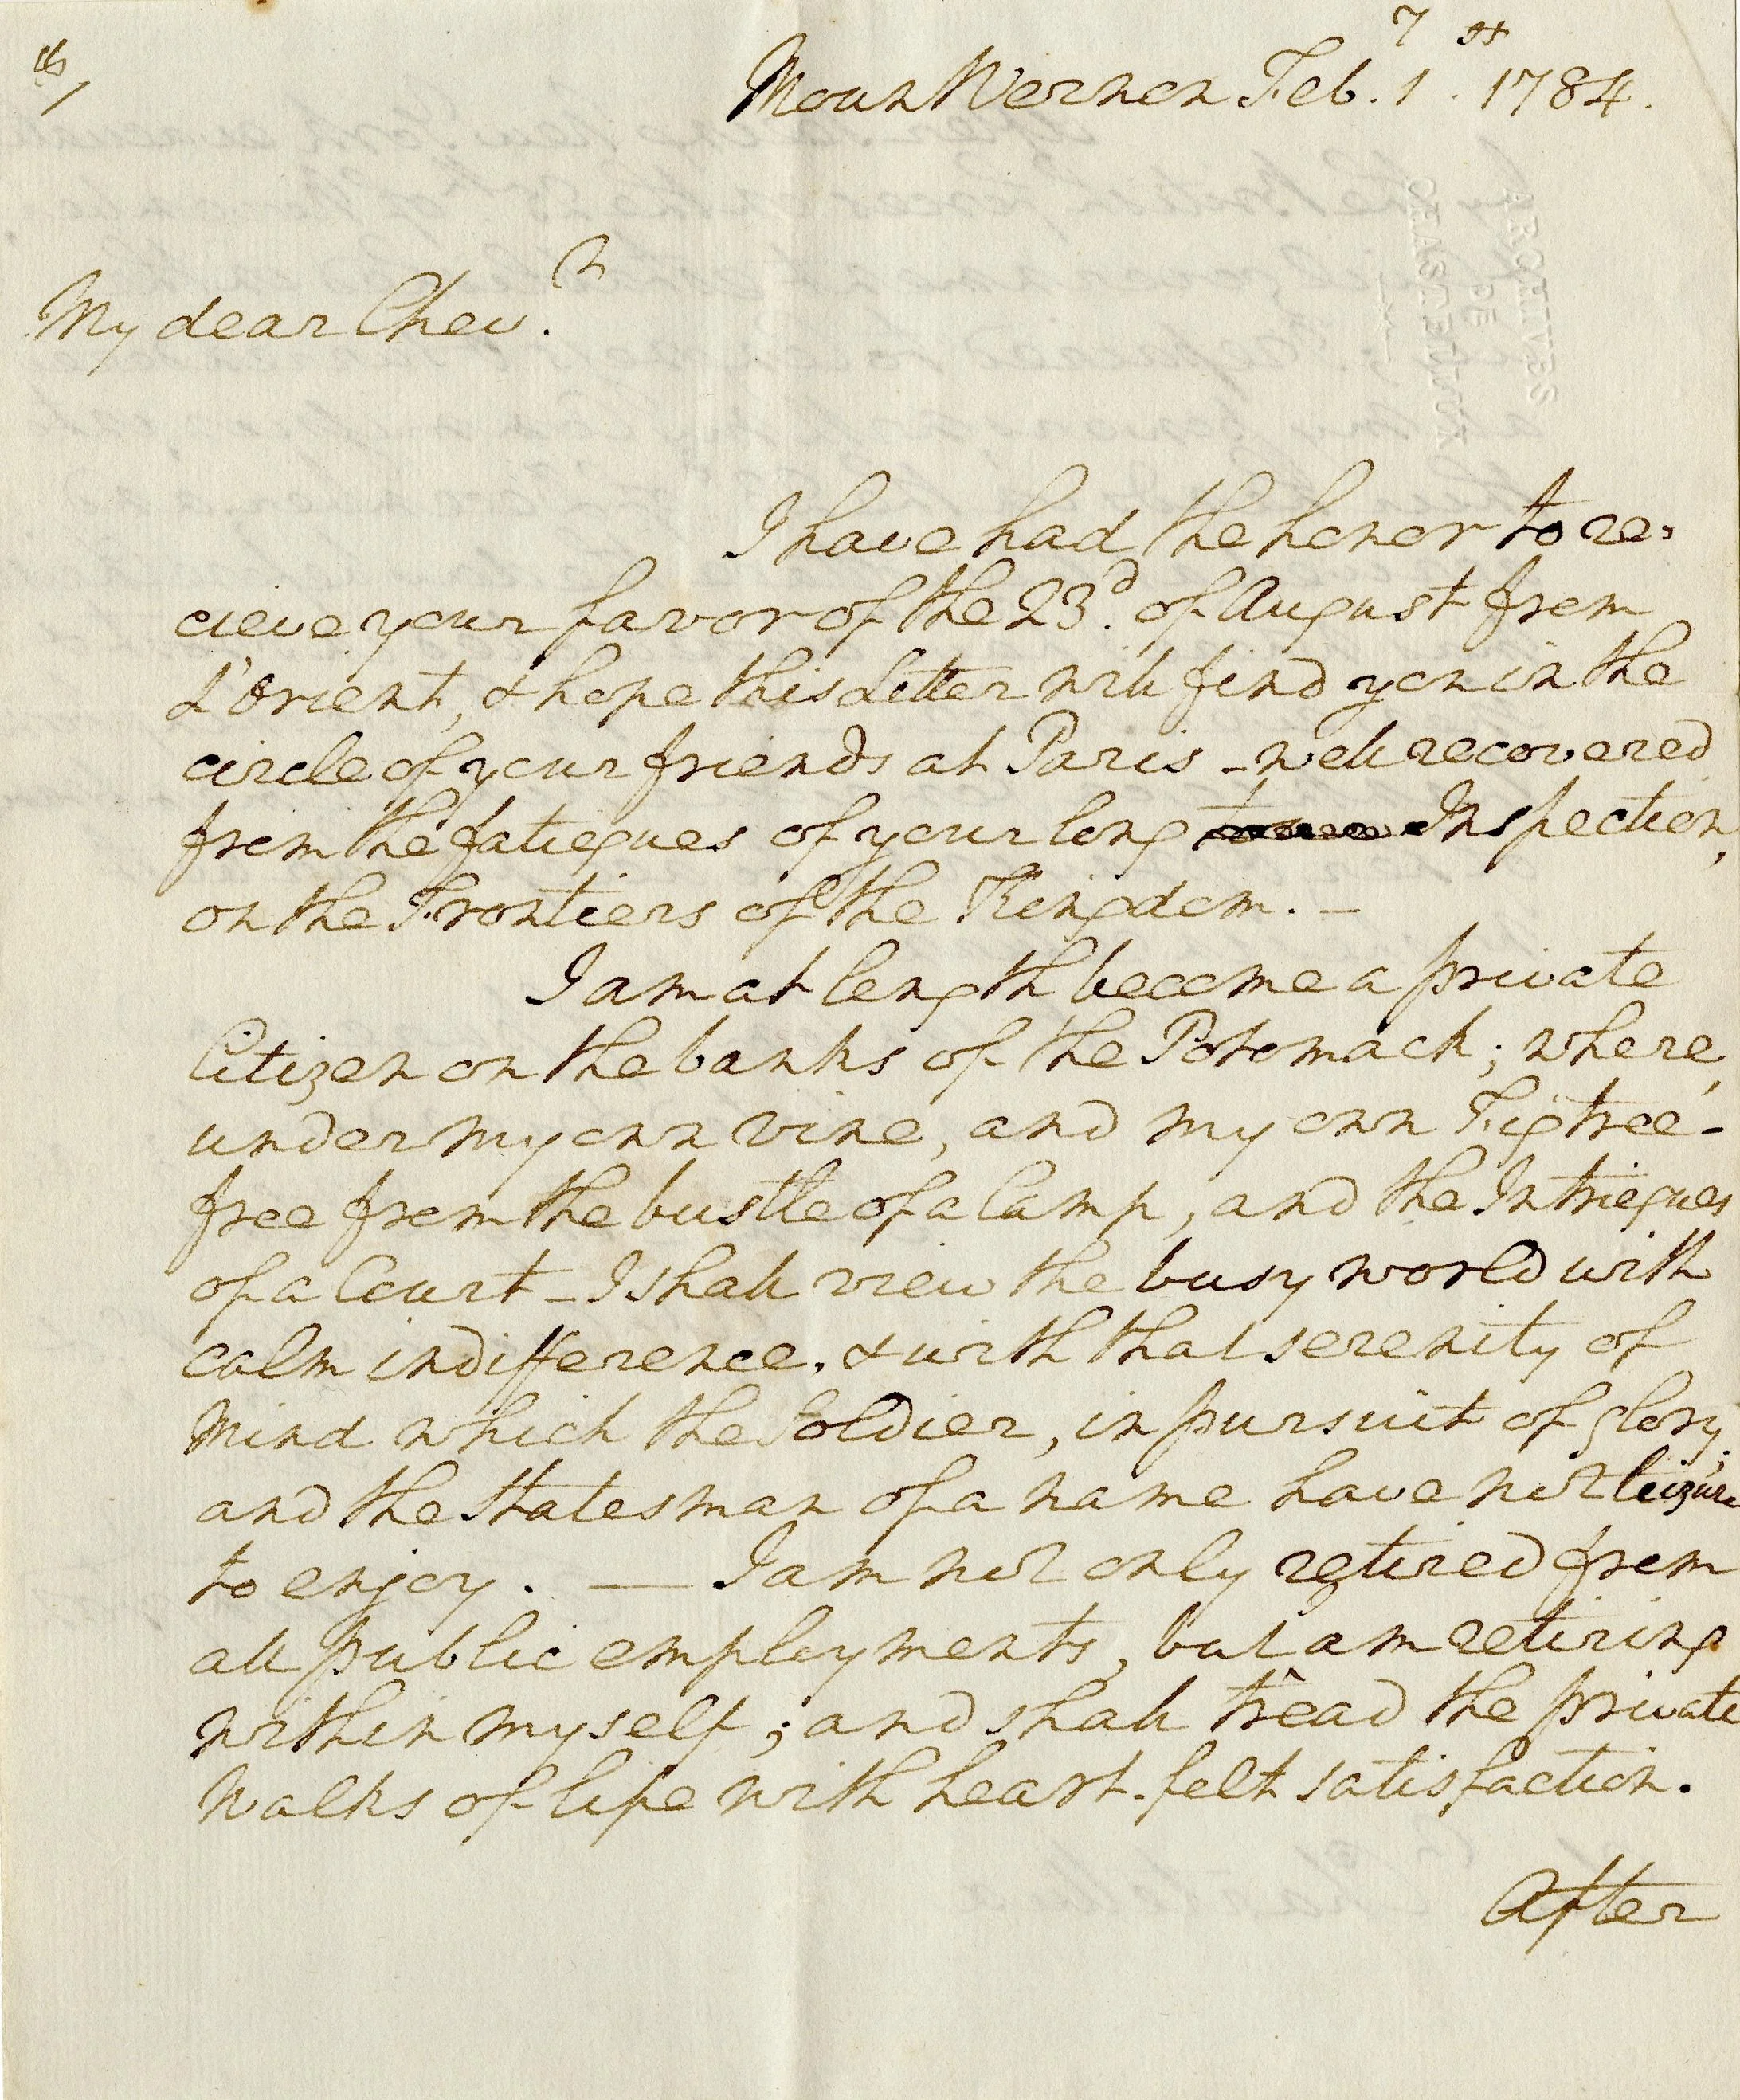 Mount Vernon Feb.y 1st. 1784.
My dear Chevr.
I have had the honor to re-
cieve your favor of the 23d. of August from
L'Orient, & hope this Letter will find you in the
circle of your friends at Paris - well recovered
from the fatiegues of your long Inspection,
on the Frontiers of the Kingdom. -
I am at length become a private
Citizen on the banks of the Potomack; where,
under my own vine, and my own Fig tree -
free from the bustle of a Camp, and the Intriegues
of a Court - I shall view the busy world with
calm indifference, & with that serenity of
Mind which the Soldier, in pursuit of glory,
and the Statesman of a name have not leizure
to enjoy. — I am not only retired from
all public employments, but am retiring
within myself; and shall tread the private
Walks of life with heart-felt satisfaction.
After
ARCHIVES
DE
CHASTELLUX